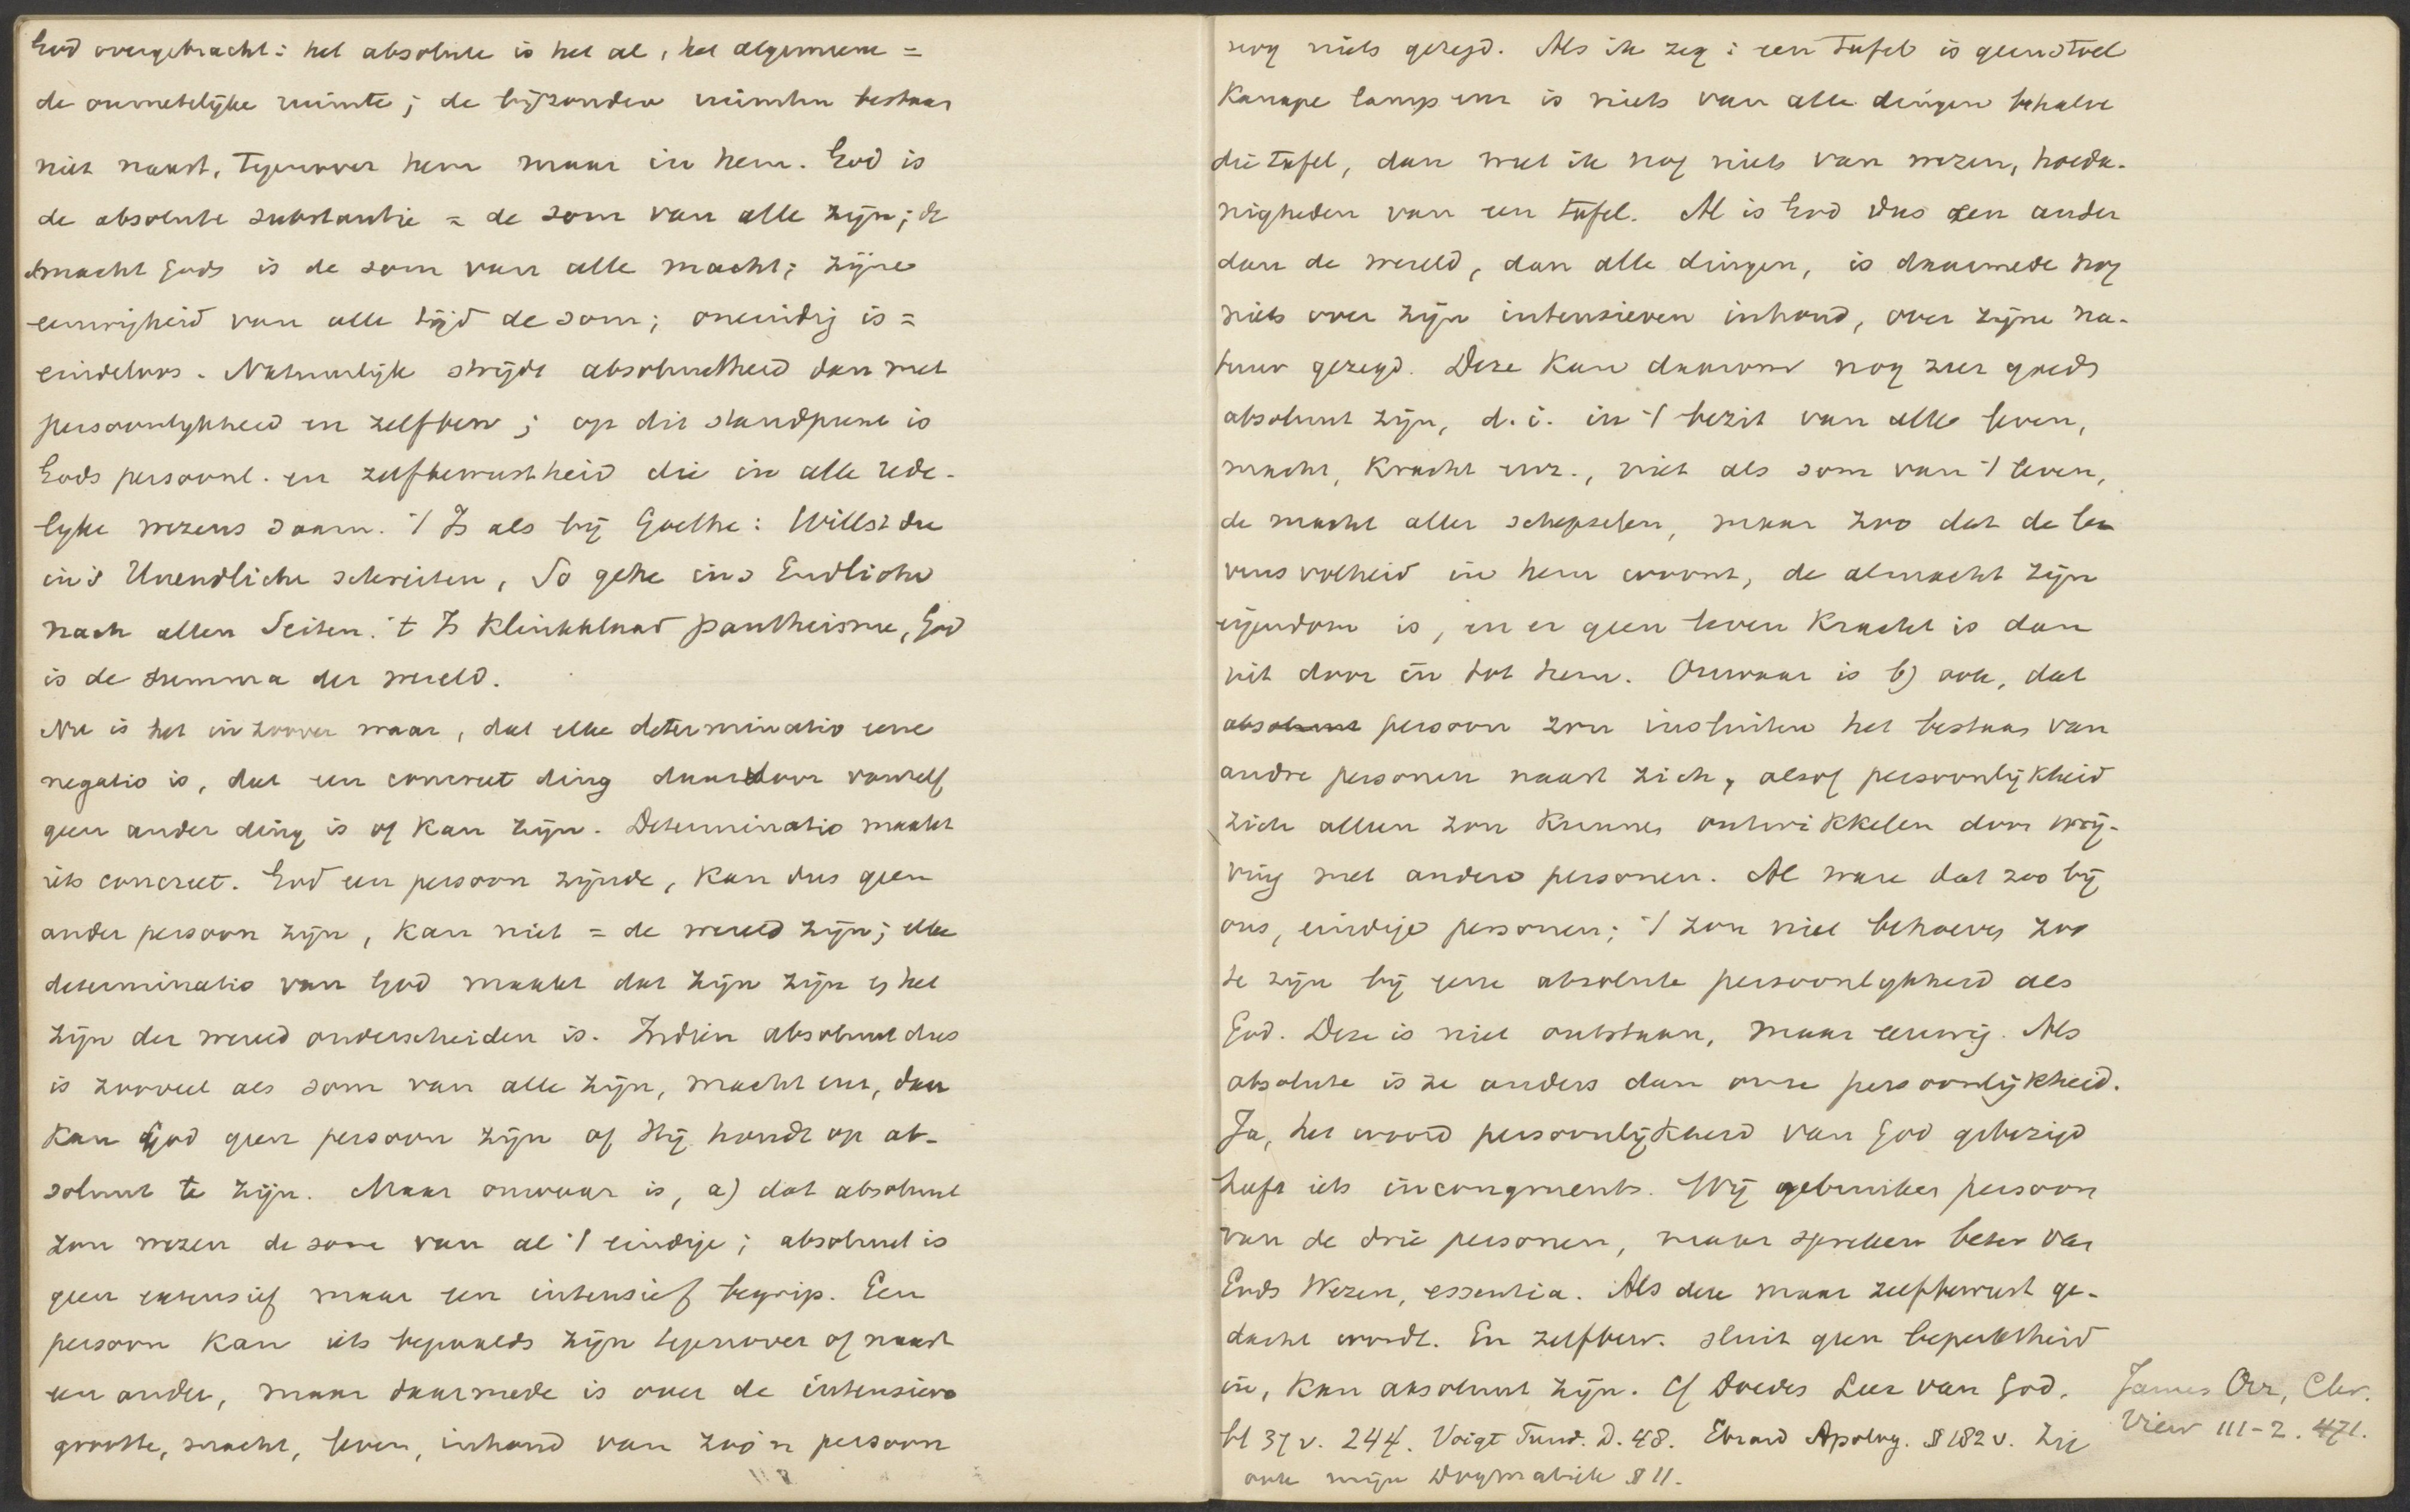 God overgebracht: het absolute is het al, het algemeene =
de onmetelijke ruimte; de bijzondere ruimten bestaan
niet naast, tegenover hem maar in hem. God is
de absolute substantie = de som van alle zijn; de
almacht Gods is de som van alle macht; zijne
eeuwigheid van alle tijd de som; oneindig is =
eindeloos. Natuurlijk strijdt absoluutheid dan met
persoonlijkheid en zelfbew; op dit standpunt is
Gods persoonl. en zelfbewustheid die in alle rede-
lijke wezens saam. 't Is als bij Goethe: Willst du
in's Unendliche schreiten, So gehe ins Endliche
nach allen Seiten. 't Is klinkklaar pantheisme, God
is de summa der wereld.
Nu is het in zoover waar, dat elke determinatio eene
negatio is, dat een concreet ding daardoor vanzelf
geen ander ding is of kan zijn. Determinatio maakt
iets concreet. God een persoon zijnde, kan dus geen
ander persoon zijn, kan niet = de wereld zijn; elke
determinatio van God maakt dat zijn zijn en het
zijn der wereld onderscheiden is. Indien absoluut dus
is zooveel als som van alle zijn, macht enz, dan
kan God geen persoon zijn of Hij houdt op ab-
soluut te zijn. Maar onwaar is, a) dat absoluut
zou wezen de som van al 't eindige; absoluut is
geen extensief maar een intensief begrip. Een
persoon kan iets bepaalds zijn tegenover of naast
een ander, maar daarmede is over de intensieve
grootte, macht, leven, inhoud van zoo'n persoon
nog niets gezegd. Als ik zeg: een tafel is geen stoel
Kanape lamp enz is niets van alle dingen behalve
die tafel, dan weet ik nog niets van wezen, hoeda-
nigheden van een tafel. Al is God dus een ander
dan de wereld, dan alle dingen, is daarmede nog
niets over zijn intensieven inhoud, over zijne na-
tuur gezegd. Deze kan daarom nog zeer goed
absoluut zijn, d.i. in 't bezit van alle leven,
macht, kracht enz., niet als som van 't leven,
de macht aller schepselen, maar zoo dat de le
vensvolheid in hem woont, de almacht zijn
eigendom is, en er geen leven kracht is dan
uit door in tot hem. Onwaar is b) ook, dat
absoluut persoon zou insluiten het bestaan van
andre personen naast zich, alsof persoonlijkheid
zich alleen zou kunnen ontwikkelen door wrij-
ving met andere personen. Al ware dat zoo bij
ons, eindige personen; 't zou niet behoeven zoo
te zijn bij eene absolute persoonlijkheid als
God. Deze is niet ontstaan, maar eeuwig. Als
absolute is ze anders dan onze persoonlijkheid.
Ja, het woord persoonlijkheid van God gebezigd
heeft iets incongruents. Wij gebruiken persoon
van de drie personen, maar spreken beter van
Gods Wezen, essentia. Als deze maar zelfbewust ge-
dacht wordt. En zelfbew. sluit geen beperktheid
in, kan absoluut zijn. Cf Doedes Leer van God.
bl 37 v. 244. Voigt Fund. D. 48. Ebrard Apolog. § 182 v. Zie
ook mijn Dogmatiek § 11.
James Orr, Chr.
View III-2. 471.